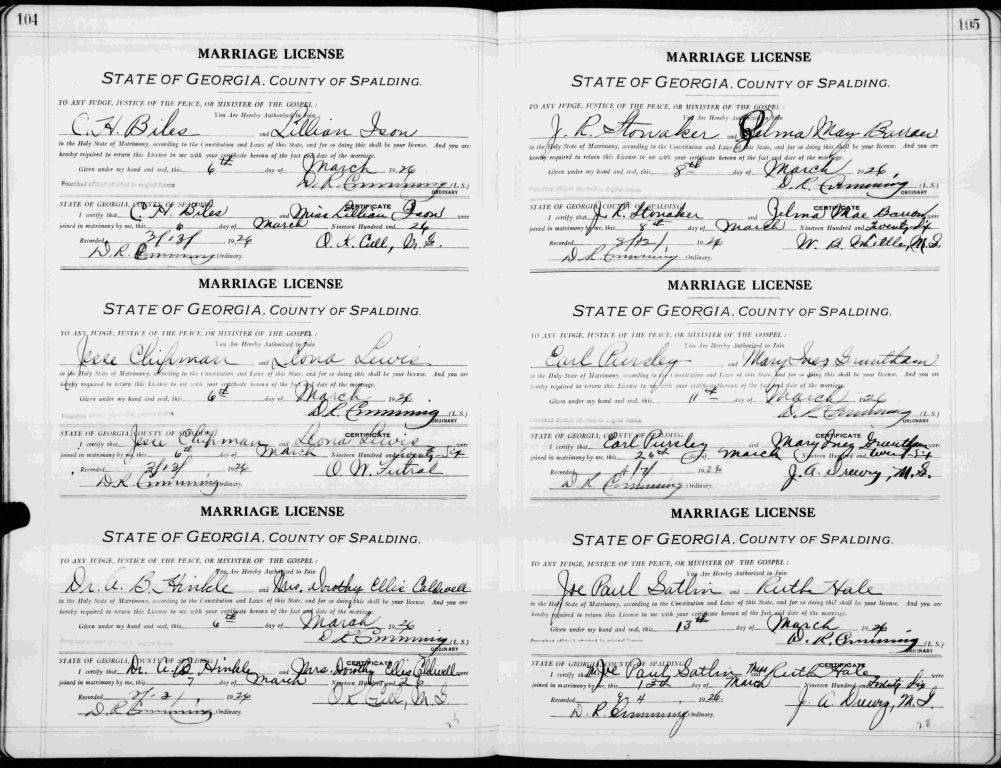 104
MARRIAGE LICENSE
STATE OF GEORGIA, COUNTY OF SPALDING.
TO ANY JUDGE, JUSTICE OF THE PEACE, OR MINISTER OF THE GOSPEL:
You Are Hereby Authorized to Join
C. H. Biles and Lillian Ison
in the Holy State of Matrimony, according to the Constitution and Laws of this State, and for so doing this shall be your license. And you are
hereby required to return this License to me with your certificate hereon of the fact and date of the marriage.
Given under my hand and seal, this 6th day of March 1926
D. R. Cumming (L. S.)
ORDINARY
STATE OF GEORGIA, COUNTY OF SPALDING. CERTIFICATE
I certify that C. H. Biles and Miss Lillian Ison were
joined in matrimony by me, this 6 day of March Nineteen Hundred and 26
Recorded 1926 O. K. Cull, M. G.
D. R. Cumming Ordinary.
MARRIAGE LICENSE
STATE OF GEORGIA, COUNTY OF SPALDING.
TO ANY JUDGE, JUSTICE OF THE PEACE, OR MINISTER OF THE GOSPEL:
You Are Hereby Authorized to Join
Jesse Chipman and Leona Lewis
in the Holy State of Matrimony, according to the Constitution and Laws of this State, and for so doing this shall be your license. And you are
hereby required to return this License to me with your certificate hereon of the fact and date of the marriage.
Given under my hand and seal, this 6th day of March 1926
D. R. Cumming (L. S.)
ORDINARY
STATE OF GEORGIA, COUNTY OF SPALDING. CERTIFICATE
I certify that Jesse Chipman and Leona Lewis were
joined in matrimony by me, this 6th day of March Nineteen Hundred and twenty-six
Recorded 1926 O. W. Futral
D. R. Cumming Ordinary.
MARRIAGE LICENSE
STATE OF GEORGIA, COUNTY OF SPALDING.
TO ANY JUDGE, JUSTICE OF THE PEACE, OR MINISTER OF THE GOSPEL:
You Are Hereby Authorized to Join
Dr. A. B. Hinkle and Mrs. Dorothy Ellis Caldwell
in the Holy State of Matrimony, according to the Constitution and Laws of this State, and for so doing this shall be your license. And you are
hereby required to return this License to me with your certificate hereon of the fact and date of the marriage.
Given under my hand and seal, this 6th day of March 1926
D. R. Cumming (L. S.)
ORDINARY
STATE OF GEORGIA, COUNTY OF SPALDING. CERTIFICATE
I certify that Dr. A. B. Hinkle and Mrs. Dorothy Ellis Caldwell were
joined in matrimony by me, this 7 day of March Nineteen Hundred and 26
Recorded 1926 M. G.
D. R. Cumming Ordinary.
105
MARRIAGE LICENSE
STATE OF GEORGIA, COUNTY OF SPALDING.
TO ANY JUDGE, JUSTICE OF THE PEACE, OR MINISTER OF THE GOSPEL:
You Are Hereby Authorized to Join
J. R. Stonaker and Zelma May Barrow
in the Holy State of Matrimony, according to the Constitution and Laws of this State, and for so doing this shall be your license. And you are
hereby required to return this License to me with your certificate hereon of the fact and date of the marriage.
Given under my hand and seal, this 8th day of March 1926
D. R. Cumming (L. S.)
ORDINARY
STATE OF GEORGIA, COUNTY OF SPALDING. CERTIFICATE
I certify that J. R. Stonaker and Zelma Mae Barrow were
joined in matrimony by me, this 8th day of March Nineteen Hundred and twenty six
Recorded 1926 W. B. Whittle, M. G.
D. R. Cumming Ordinary.
MARRIAGE LICENSE
STATE OF GEORGIA, COUNTY OF SPALDING.
TO ANY JUDGE, JUSTICE OF THE PEACE, OR MINISTER OF THE GOSPEL:
You Are Hereby Authorized to Join
Earl Pursley and Mary Inez Grantham
in the Holy State of Matrimony, according to the Constitution and Laws of this State, and for so doing this shall be your license. And you are
hereby required to return this License to me with your certificate hereon of the fact and date of the marriage.
Given under my hand and seal, this 11th day of March 1926
D. R. Cumming (L. S.)
ORDINARY
STATE OF GEORGIA, COUNTY OF SPALDING. CERTIFICATE
I certify that Earl Pursley and Mary Inez Grantham were
joined in matrimony by me, this 26th day of March Nineteen Hundred and twenty-six
Recorded 1926 J. A. Drewry, M. G.
D. R. Cumming Ordinary.
MARRIAGE LICENSE
STATE OF GEORGIA, COUNTY OF SPALDING.
TO ANY JUDGE, JUSTICE OF THE PEACE, OR MINISTER OF THE GOSPEL:
You Are Hereby Authorized to Join
Joe Paul Satlin and Ruth Hale
in the Holy State of Matrimony, according to the Constitution and Laws of this State, and for so doing this shall be your license. And you are
hereby required to return this License to me with your certificate hereon of the fact and date of the marriage.
Given under my hand and seal, this 13th day of March 1926
D. R. Cumming (L. S.)
ORDINARY
STATE OF GEORGIA, COUNTY OF SPALDING. CERTIFICATE
I certify that Mr. Joe Paul Satlin and Miss Ruth Hale were
joined in matrimony by me, this 13th day of March Nineteen Hundred and Twenty Six
Recorded 1926. J. A. Drewry, M. G.
D. R. Cumming Ordinary.